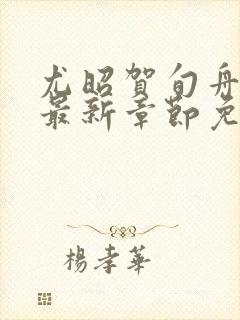 尤昭賀旬舟
最新章節免
楊孝華